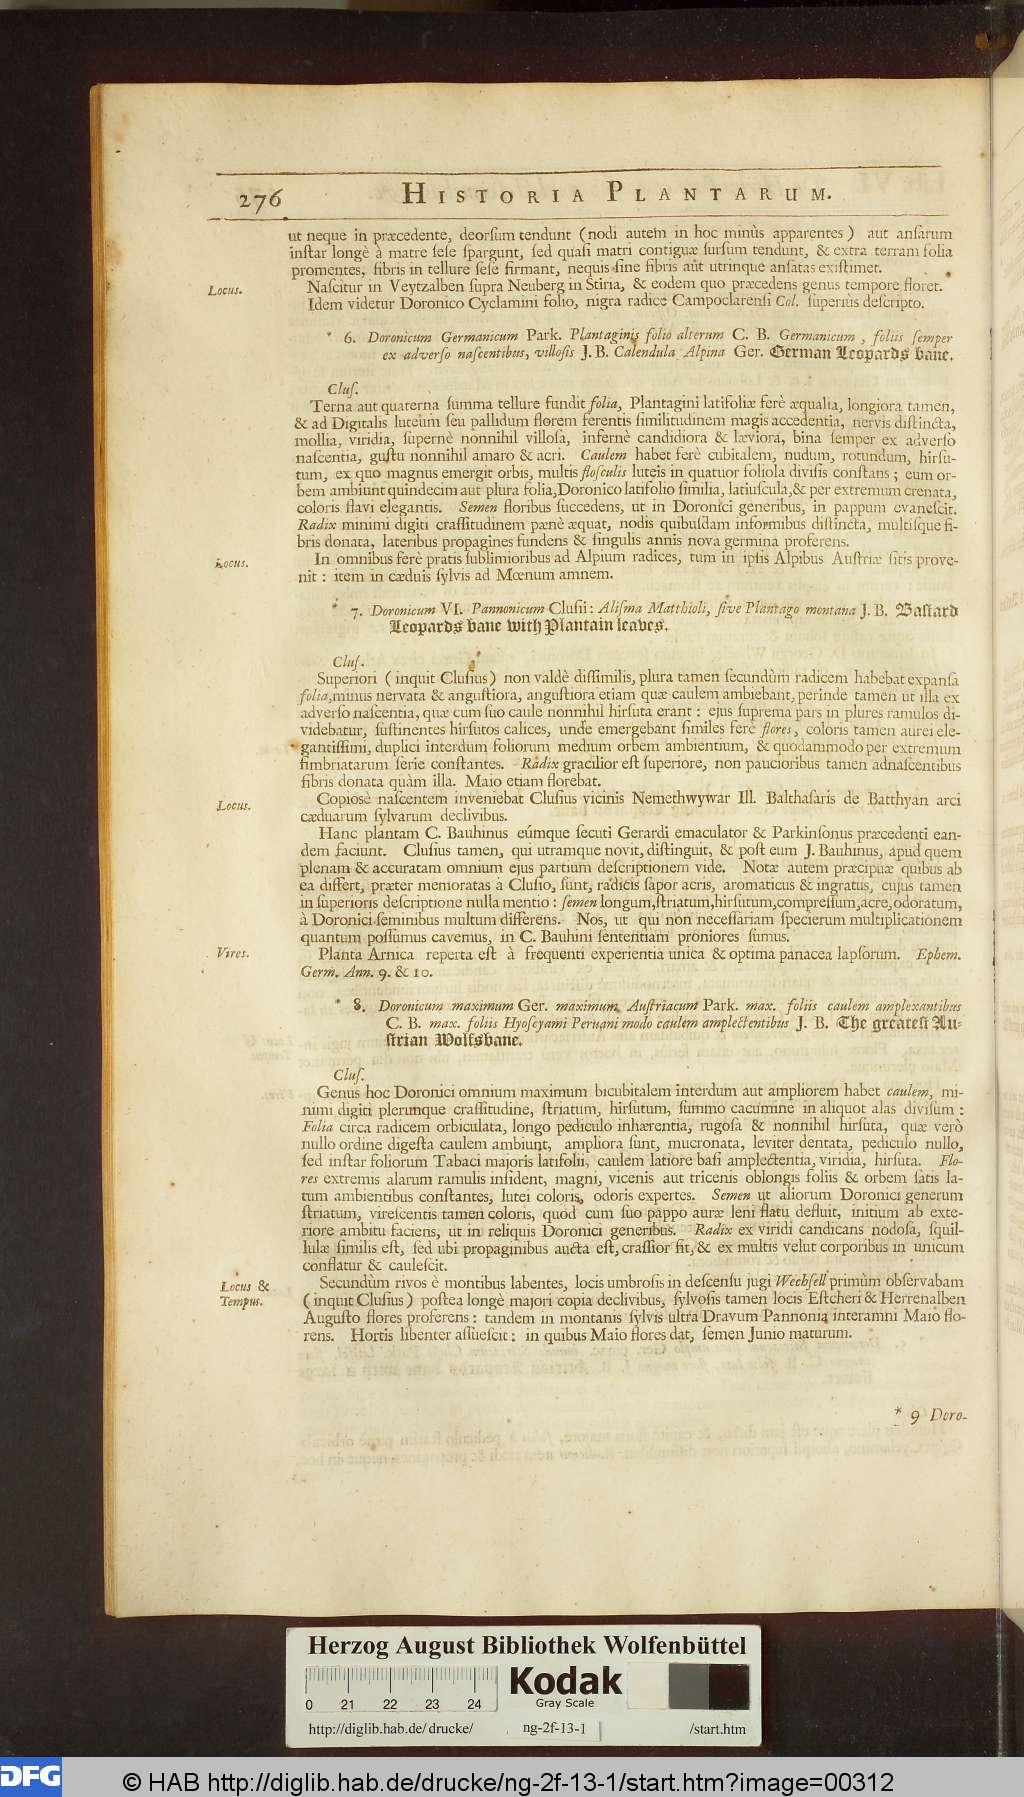 276 HISTORIA PLANTARUM.
ut neque in præcedente, deorſum tendunt (nodi autem in hoc minùs apparentes) aut anſarum
inſtar longè à matre ſeſe ſpargunt, ſed quaſi matri contiguæ ſurſum tendunt, & extra terram folia
promentes, fibris in tellure ſeſe firmant, nequis ſine fibris aut utrinque anſatas exiſtimet.
Locus. Naſcitur in Veytzalben ſupra Neuberg in Stiria, & eodem quo præcedens genus tempore floret.
Idem videtur Doronico Cyclamini folio, nigra radice Campoclarenſi Col. ſuperiùs deſcripto.
* 6. Doronicum Germanicum Park. Plantaginis folio alterum C. B. Germanicum, foliis ſemper
ex adverſo naſcentibus, villoſis J. B. Calendula Alpina Ger. German Leopards bane.
Cluſ.
Terna aut quaterna ſumma tellure fundit folia, Plantagini latifoliæ ferè æqualia, longiora tamen,
& ad Digitalis luteum ſeu pallidum florem ferentis ſimilitudinem magis accedentia, nervis diſtincta,
mollia, viridia, ſupernè nonnihil villoſa, infernè candidiora & læviora, bina ſemper ex adverſo
naſcentia, guſtu nonnihil amaro & acri. Caulem habet ferè cubitalem, nudum, rotundum, hirſu-
tum, ex quo magnus emergit orbis, multis floſculis luteis in quatuor foliola diviſis conſtans; eum or-
bem ambiunt quindecim aut plura folia, Doronico latifolio ſimilia, latiuſcula, & per extremum crenata,
coloris flavi elegantis. Semen floribus ſuccedens, ut in Doronici generibus, in pappum evaneſcit.
Radix minimi digiti craſſitudinem pæne æquat, nodis quibuſdam informibus diſtincta, multiſque fi-
bris donata, lateribus propagines fundens & ſingulis annis nova germina proferens.
Locus. In omnibus ferè pratis ſublimioribus ad Alpium radices, tum in ipſis Alpibus Auſtriæ ſitis prove-
nit: item in cæduis ſylvis ad Mœnum amnem.
* 7. Doronicum VI. Pannonicum Cluſii: Aliſma Matthioli, ſive Plantago montana J. B. Baſtard
Leopards bane with Plantain leaves.
Cluſ.
Superiori (inquit Cluſius) non valdè diſſimilis, plura tamen ſecundùm radicem habebat expanſa
folia, minus nervata & anguſtiora, anguſtiora etiam quæ caulem ambiebant, perinde tamen ut illa ex
adverſo naſcentia, quæ cum ſuo caule nonnihil hirſuta erant: ejus ſuprema pars in plures ramulos di-
videbatur, ſuſtinentes hirſutos calices, unde emergebant ſimiles ferè flores, coloris tamen aurei ele-
gantiſſimi, duplici interdum foliorum medium orbem ambientium, & quodammodo per extremum
fimbriatarum ſerie conſtantes. Radix gracilior eſt ſuperiore, non paucioribus tamen adnaſcentibus
fibris donata quàm illa. Maio etiam florebat.
Locus. Copioſè naſcentem inveniebat Cluſius vicinis Nemethwywar Ill. Balthaſaris de Batthyan arci
cæduarum ſylvarum declivibus.
Hanc plantam C. Bauhinus eúmque ſecuti Gerardi emaculator & Parkinſonus præcedenti ean-
dem faciunt. Cluſius tamen, qui utramque novit, diſtinguit, & poſt eum J. Bauhinus, apud quem
plenam & accuratam omnium ejus partium deſcriptionem vide. Notæ autem præcipuæ quibus ab
ea differt, præter memoratas à Cluſio, ſunt, radicis ſapor acris, aromaticus & ingratus, cujus tamen
in ſuperioris deſcriptione nulla mentio: ſemen longum, ſtriatum, hirſutum, compreſſum, acre, odoratum,
à Doronici ſeminibus multum differens. Nos, ut qui non neceſſariam ſpecierum multiplicationem
quantum poſſumus cavemus, in C. Bauhini ſententiam proniores ſumus.
Vires. Planta Arnica reperta eſt à frequenti experientia unica & optima panacea lapſorum. Ephem.
Germ. Ann. 9. & 10.
* 8. Doronicum maximum Ger. maximum Auſtriacum Park. max. foliis caulem amplexantibus
C. B. max. foliis Hyoſcyami Peruani modo caulem amplectentibus J. B. The greateſt Au-
ſtrian Wolfsbane.
Cluſ.
Genus hoc Doronici omnium maximum bicubitalem interdum aut ampliorem habet caulem, mi-
nimi digiti plerunque craſſitudine, ſtriatum, hirſutum, ſummo cacumine in aliquot alas diviſum:
Folia circa radicem orbiculata, longo pediculo inhærentia, rugoſa & nonnihil hirſuta, quæ verò
nullo ordine digeſta caulem ambiunt, ampliora ſunt, mucronata, leviter dentata, pediculo nullo,
ſed inſtar foliorum Tabaci majoris latifolii, caulem latiore baſi amplectentia, viridia, hirſuta. Flo-
res extremis alarum ramulis inſident, magni, vicenis aut tricenis oblongis foliis & orbem ſatis la-
tum ambientibus conſtantes, lutei coloris, odoris expertes. Semen ut aliorum Doronici generum
ſtriatum, vireſcentis tamen coloris, quod cum ſuo pappo auræ leni flatu defluit, initium ab exte-
riore ambitu faciens, ut in reliquis Doronici generibus. Radix ex viridi candicans nodoſa, ſquil-
lulæ ſimilis eſt, ſed ubi propaginibus aucta eſt, craſſior fit, & ex multis velut corporibus in unicum
conflatur & cauleſcit.
Locus & Secundùm rivos è montibus labentes, locis umbroſis in deſcenſu jugi Wechſell primùm obſervabam
Tempus. (inquit Cluſius) poſtea longè majori copia declivibus, ſylvoſis tamen locis Eſtcheri & Herrenalben
Auguſto flores proferens: tandem in montanis ſylvis ultra Dravum Pannonia interamni Maio flo-
rens. Hortis libenter aſſueſcit: in quibus Maio flores dat, ſemen Junio maturum.
* 9 Doro-
Herzog August Bibliothek Wolfenbüttel
Kodak
Gray Scale
0 21 22 23 24
http://diglib.hab.de/drucke/ ng-2f-13-1 /start.htm
DFG © HAB http://diglib.hab.de/drucke/ng-2f-13-1/start.htm?image=00312